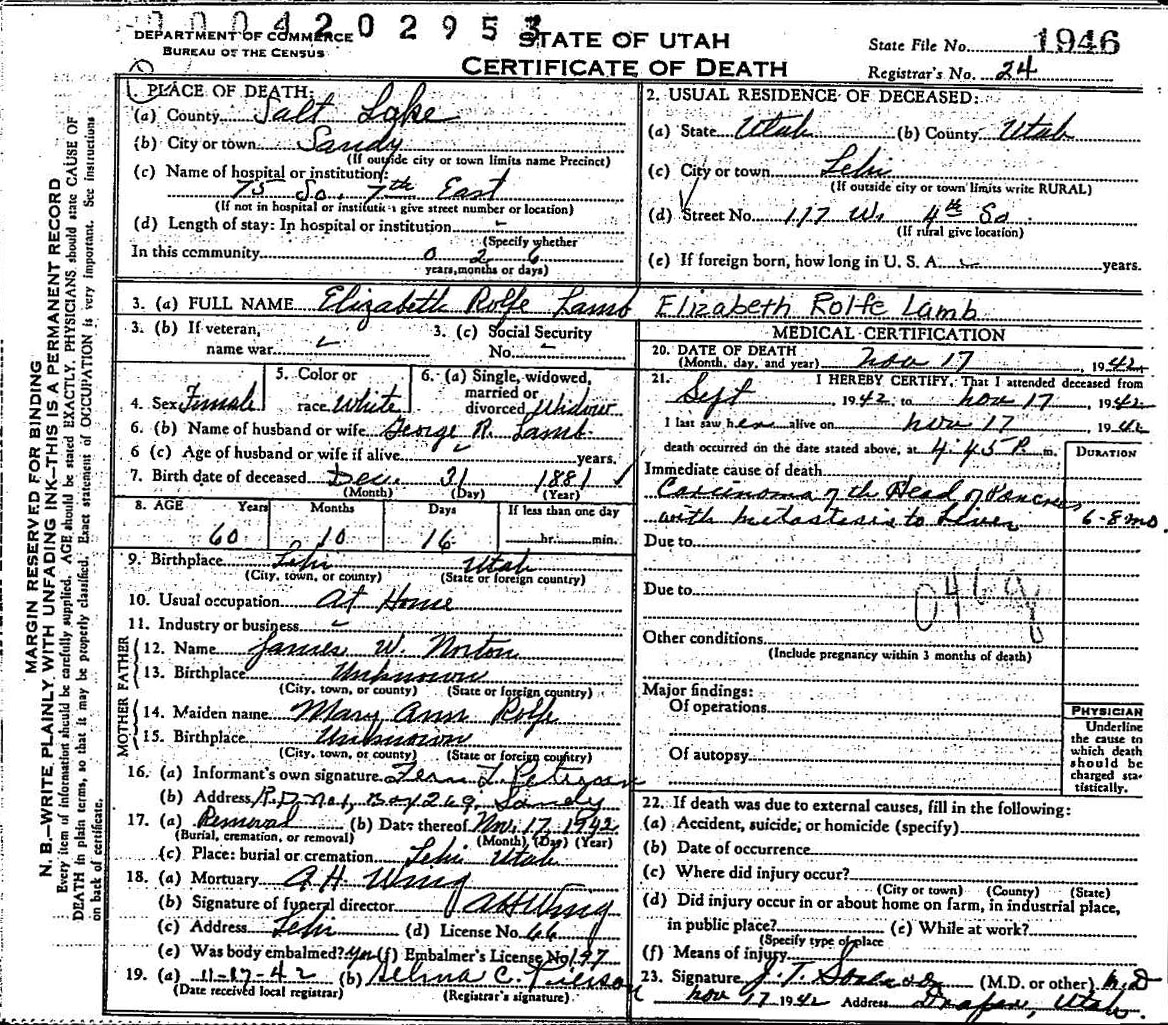 0004202953
DEPARTMENT OF COMMERCE
BUREAU OF THE CENSUS
STATE OF UTAH
CERTIFICATE OF DEATH
State File No. 1946
Registrar's No. 24
MARGIN RESERVED FOR BINDING
N. B.—WRITE PLAINLY WITH UNFADING INK—THIS IS A PERMANENT RECORD
Every item of information should be carefully supplied. AGE should be stated EXACTLY. PHYSICIANS should state CAUSE OF
DEATH in plain terms, so that it may be properly classified. Exact statement of OCCUPATION is very important. See Instructions
on back of certificate.
1. PLACE OF DEATH:
(a) County Salt Lake
(b) City or town Sandy
(If outside city or town limits name Precinct)
(c) Name of hospital or institution:
75 So. 7th East
(If not in hospital or institution give street number or location)
(d) Length of stay: In hospital or institution
(Specify whether
In this community 0 2 6
years, months or days)
2. USUAL RESIDENCE OF DECEASED:
(a) State Utah (b) County Utah
(c) City or town Lehi
(If outside city or town limits write RURAL)
(d) Street No. 117 W. 4th So
(If rural give location)
(e) If foreign born, how long in U. S. A. years.
3. (a) FULL NAME Elizabeth Rolfe Lamb Elizabeth Rolfe Lamb
3. (b) If veteran,
name war
3. (c) Social Security
No. -
4. Sex Female
5. Color or
race White
6. (a) Single, widowed,
married or
divorced Widow
6. (b) Name of husband or wife George R. Lamb
6 (c) Age of husband or wife if alive years.
7. Birth date of deceased Dec. 31 1881
(Month) (Day) (Year)
8. AGE Years Months Days If less than one day
60 10 16 hr. min.
9. Birthplace Lehi Utah
(City, town, or county) (State or foreign country)
10. Usual occupation At Home
11. Industry or business -
FATHER
12. Name James W. Norton
13. Birthplace Unknown
(City, town, or county) (State or foreign country)
MOTHER
14. Maiden name Mary Ann Rolfe
15. Birthplace Unknown
(City, town, or county) (State or foreign country)
16. (a) Informant's own signature Fern L. Peterson
(b) Address R.D. No 1, Box 269, Sandy
17. (a) Removal (b) Date thereof Nov. 17 1942
(Burial, cremation, or removal) (Month) (Day) (Year)
(c) Place: burial or cremation Lehi Utah
18. (a) Mortuary A. H. Wing
(b) Signature of funeral director A H Wing
(c) Address Lehi (d) License No. 66
(e) Was body embalmed? Yes (f) Embalmer's License No. 197
19. (a) 11-17-42 (b) Selma C.
(Date received local registrar) (Registrar's signature)
MEDICAL CERTIFICATION
20. DATE OF DEATH
(Month, day, and year) Nov 17, 1942
21. I HEREBY CERTIFY, That I attended deceased from
Sept, 1942, to Nov 17, 1942
I last saw her alive on Nov 17, 1942
death occurred on the date stated above, at 4:45 P. m.
DURATION
Immediate cause of death
Carcinoma of the Head of Pancreas
with metastasis to Liver 6-8 mo
Due to
Due to
046g
Other conditions
(Include pregnancy within 3 months of death)
Major findings:
Of operations
Of autopsy
PHYSICIAN
Underline
the cause to
which death
should be
charged sta-
tistically.
22. If death was due to external causes, fill in the following:
(a) Accident, suicide, or homicide (specify)
(b) Date of occurrence
(c) Where did injury occur?
(City or town) (County) (State)
(d) Did injury occur in or about home on farm, in industrial place,
in public place? (e) While at work?
(Specify type of place
(f) Means of injury
23. Signature J. T. (M.D. or other) M.D
Nov 17 1942 Address Draper, Utah.